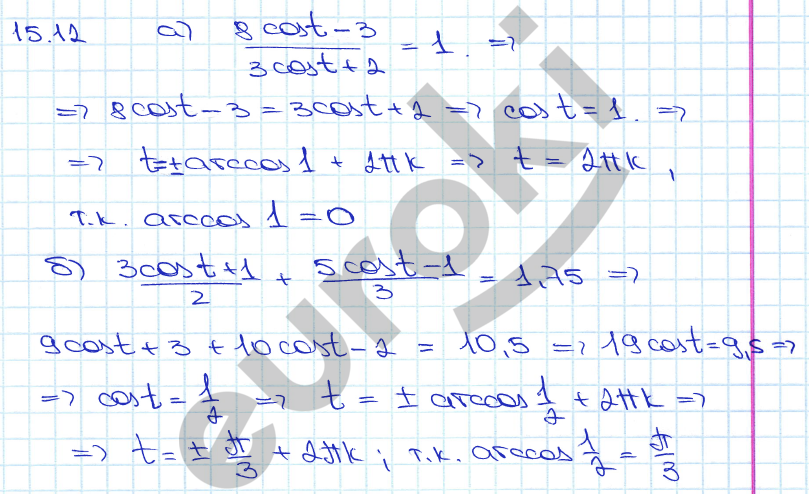 15.12 а) (8cost-3)/(3cost+2) = 1. =>
=> 8cost-3 = 3cost+2 => cost = 1. =>
=> t=±arccos1 + 2πk => t = 2πk,
т.к. arccos 1 = 0
б) (3cost+1)/2 + (5cost-1)/3 = 1,75 =>
9cost+3+10cost-2 = 10,5 => 19cost=9,5 =>
=> cost = 1/2 => t = ± arccos 1/2 + 2πk =>
=> t = ± π/3 + 2πk; т.к. arccos 1/2 = π/3
euroki